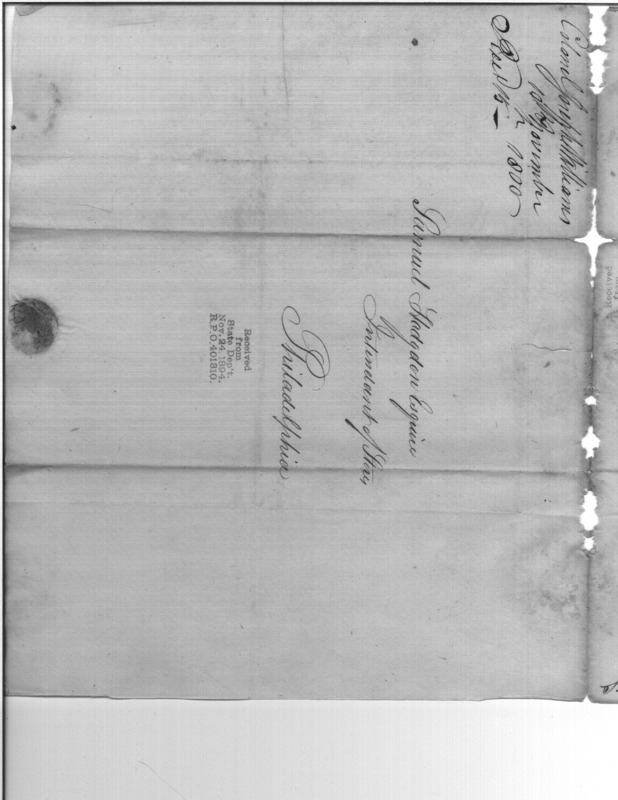 Colonel Joseph Williams
10th November
1800
Samuel Hodgdon Esquire
Intendant of
Philadelphia
Received
from
State Dep't.
Nov. 24, 1894.
R.P.O. 401310.
Received